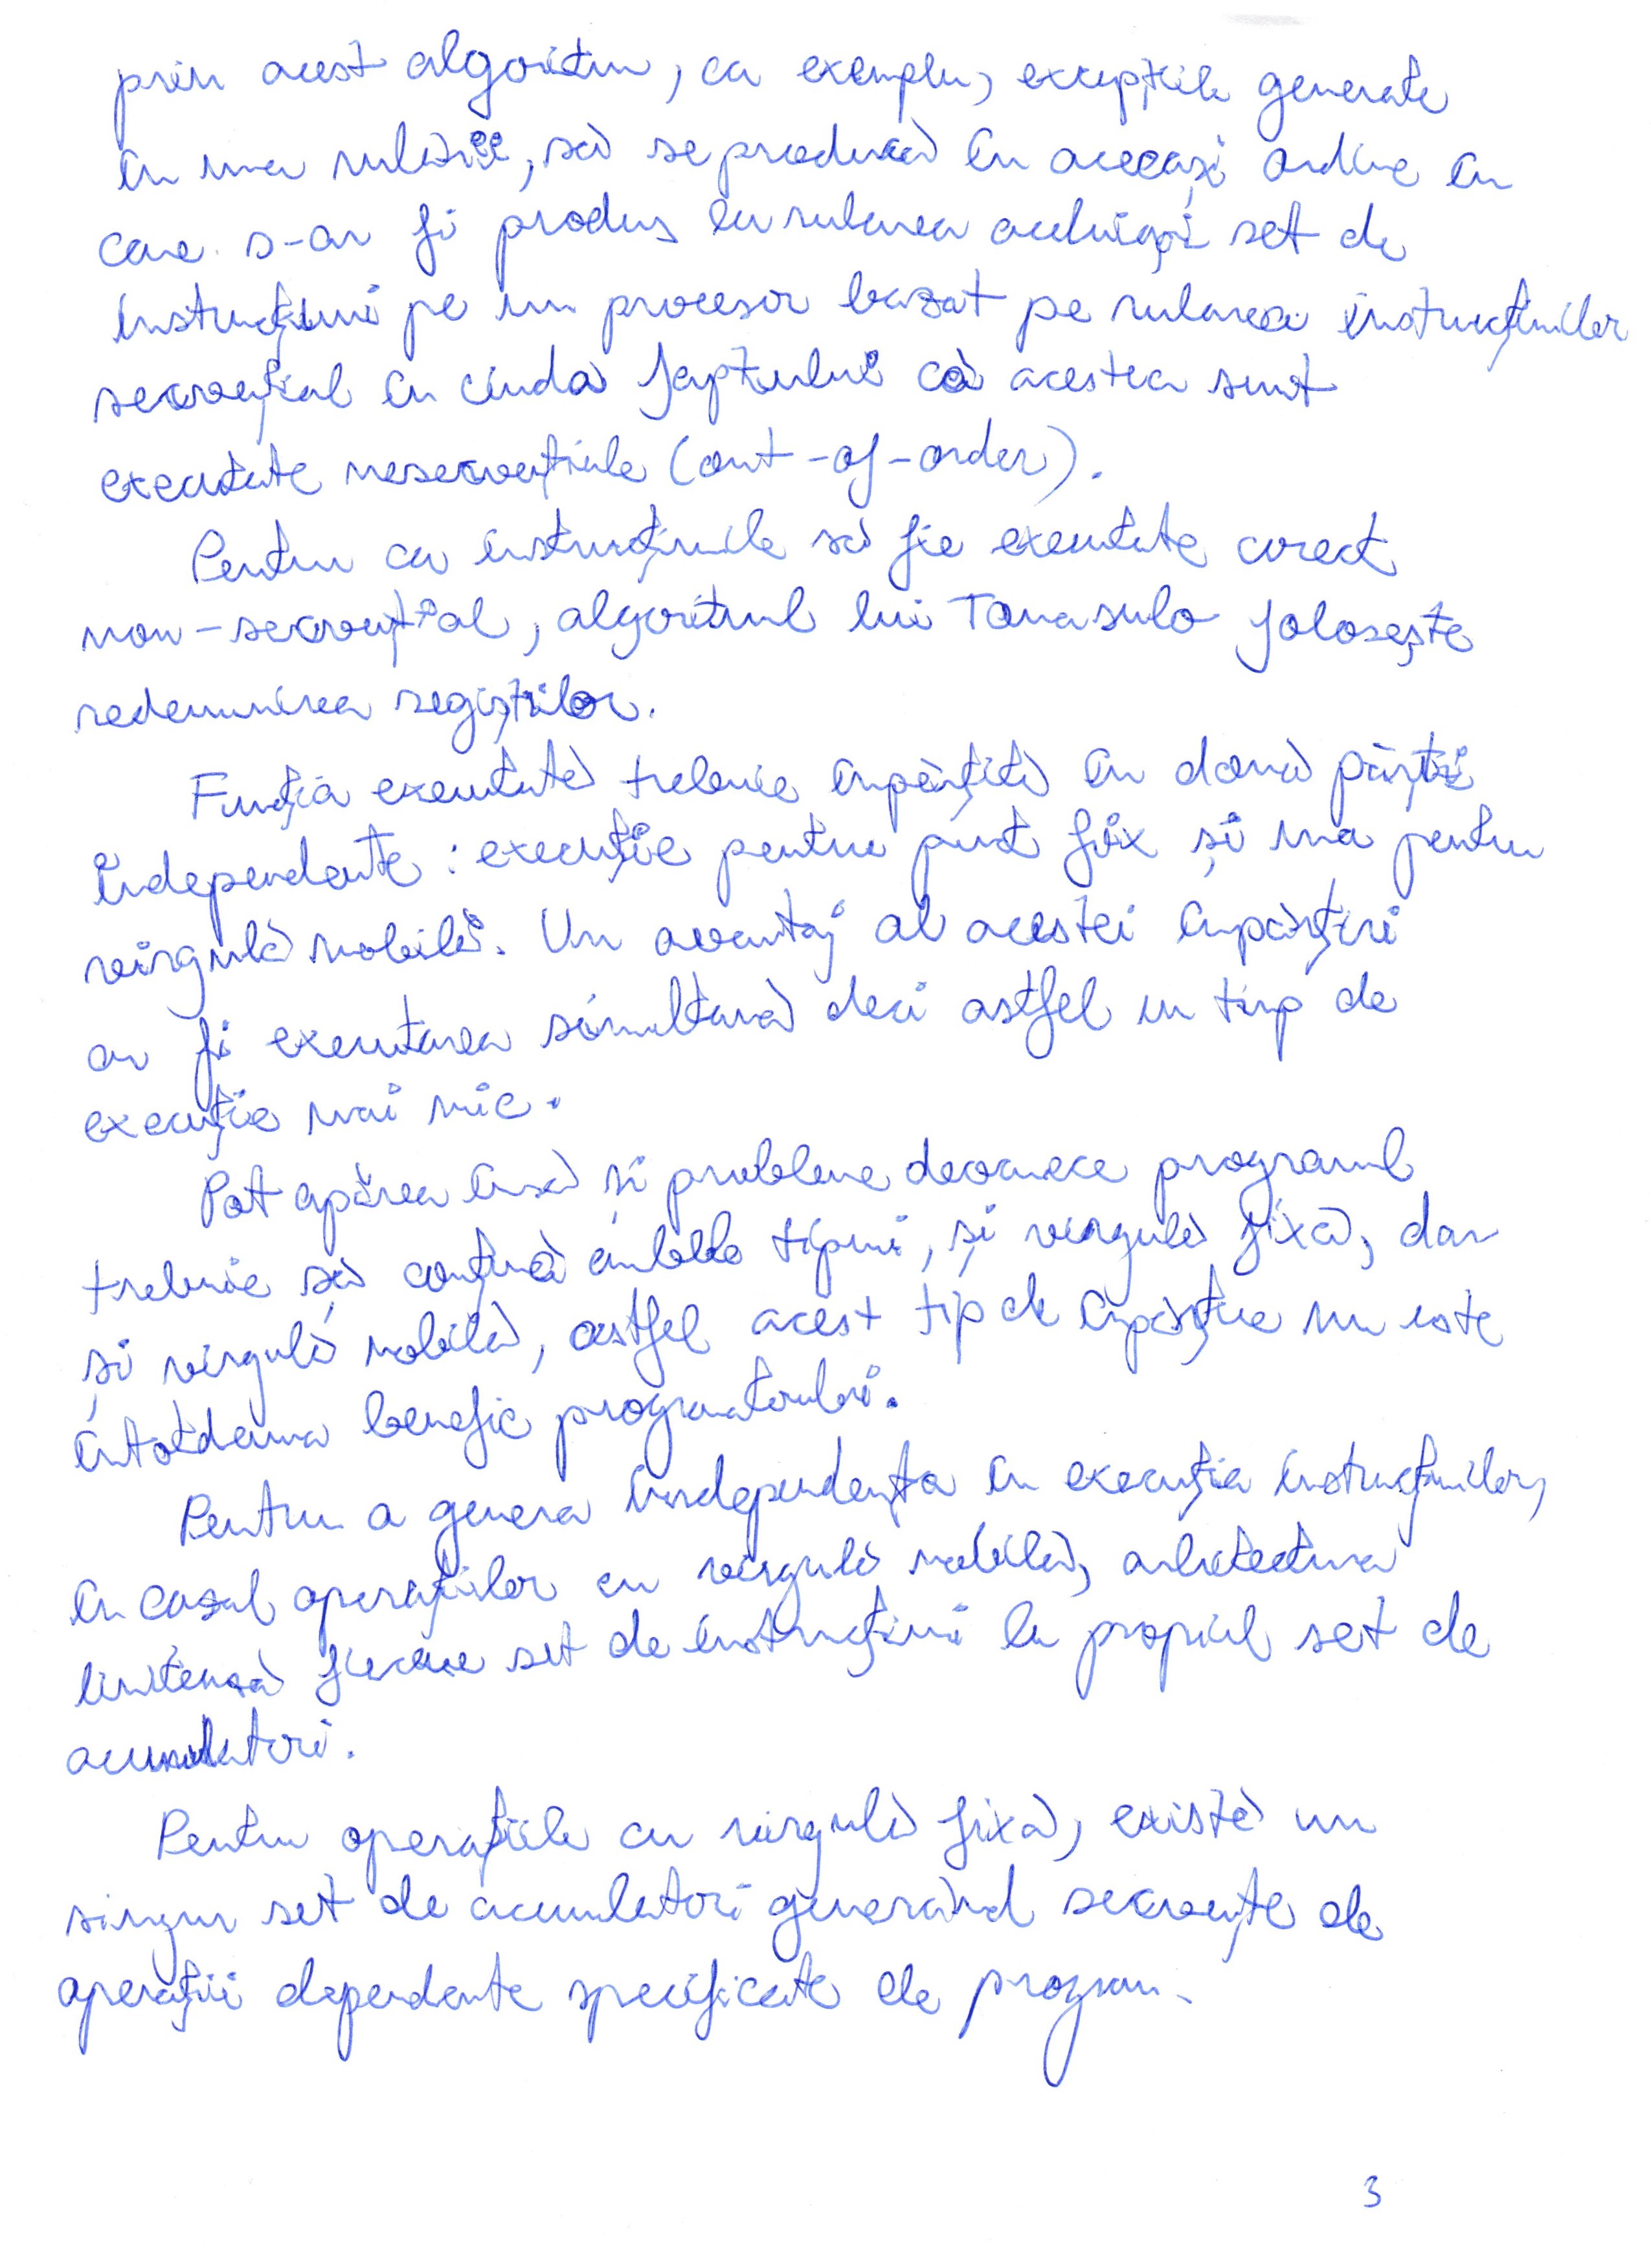 prin acest algoritm, ca exemplu, excepțiile generate
în urma rulării, să se producă în aceeași ordine în
care s-ar fi produs la rularea aceluiași set de
instrucțiuni pe un procesor bazat pe rularea instrucțiunilor
secvențial în ciuda faptului că acestea sunt
executate nesecvențiale (out-of-order).
Pentru ca instrucțiunile să fie executate corect
non-secvențial, algoritmul lui Tomasulo folosește
redenumirea regiștrilor.
Funcția executată trebuie împărțită în două părți
independente: execuție pentru punct fix și una pentru
virgulă mobilă. Un avantaj al acestei împărțiri
ar fi executarea simultană deci astfel un timp de
execuție mai mic.
Pot apărea însă și probleme deoarece programul
trebuie să conțină ambele tipuri, și virgulă fixă, dar
și virgulă mobilă, astfel acest tip de împărțire nu este
întotdeauna benefic programatorului.
Pentru a genera independența în execuția instrucțiunilor,
în cazul operațiilor cu virgulă mobilă, arhitectura
limitează fiecare set de instrucțiuni la propriul set de
acumulatori.
Pentru operațiile cu virgulă fixă, există un
singur set de acumulatori generând secvențe de
operații dependente specificate de program.
3